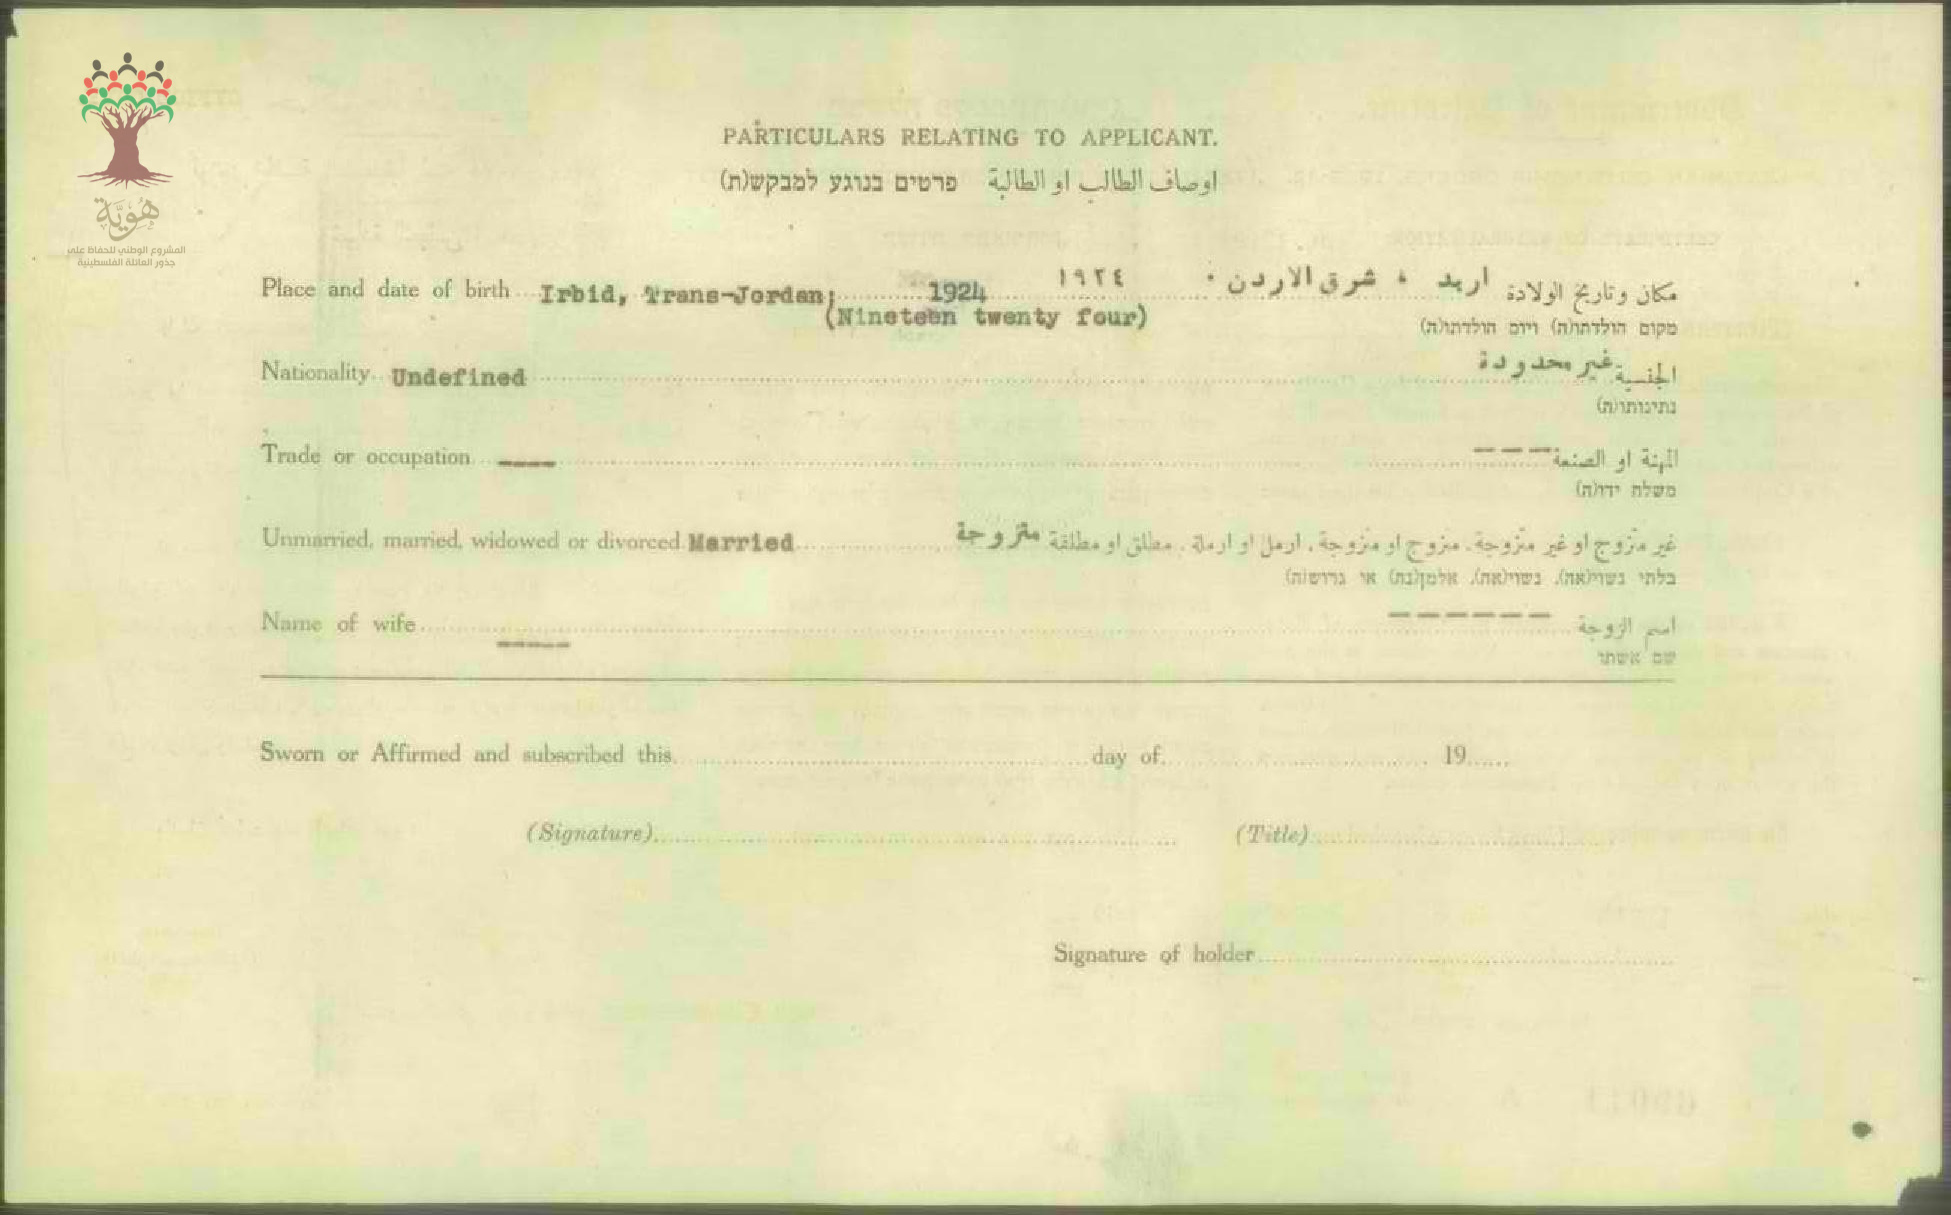 هُوِيَّة
المشروع الوطني للحفاظ على
جذور العائلة الفلسطينية
PARTICULARS RELATING TO APPLICANT.
اوصاف الطالب او الطالبة פרטים בנוגע למבקש(ת)
Place and date of birth Irbid, Trans-Jordan; 1924 ١٩٢٤ اربد ، شرق الاردن . مكان وتاريخ الولادة
(Nineteen twenty four)
מקום הולדתו(ה) ויום הולדתו(ה)
Nationality Undefined غير محدودة الجنسية
נתינותו(ה)
Trade or occupation ---- --- المهنة او الصنعة
משלח ידו(ה)
Unmarried, married, widowed or divorced Married متزوجة غير متزوج او غير متزوجة. متزوج او متزوجة. ارمل او ارملة. مطلق او مطلقة
בלתי נשוי(אה), נשוי(אה), אלמן(נה) או גרוש(ה)
Name of wife ----- ------ اسم الزوجة
שם אשתו
Sworn or Affirmed and subscribed this day of 19
(Signature) (Title)
Signature of holder